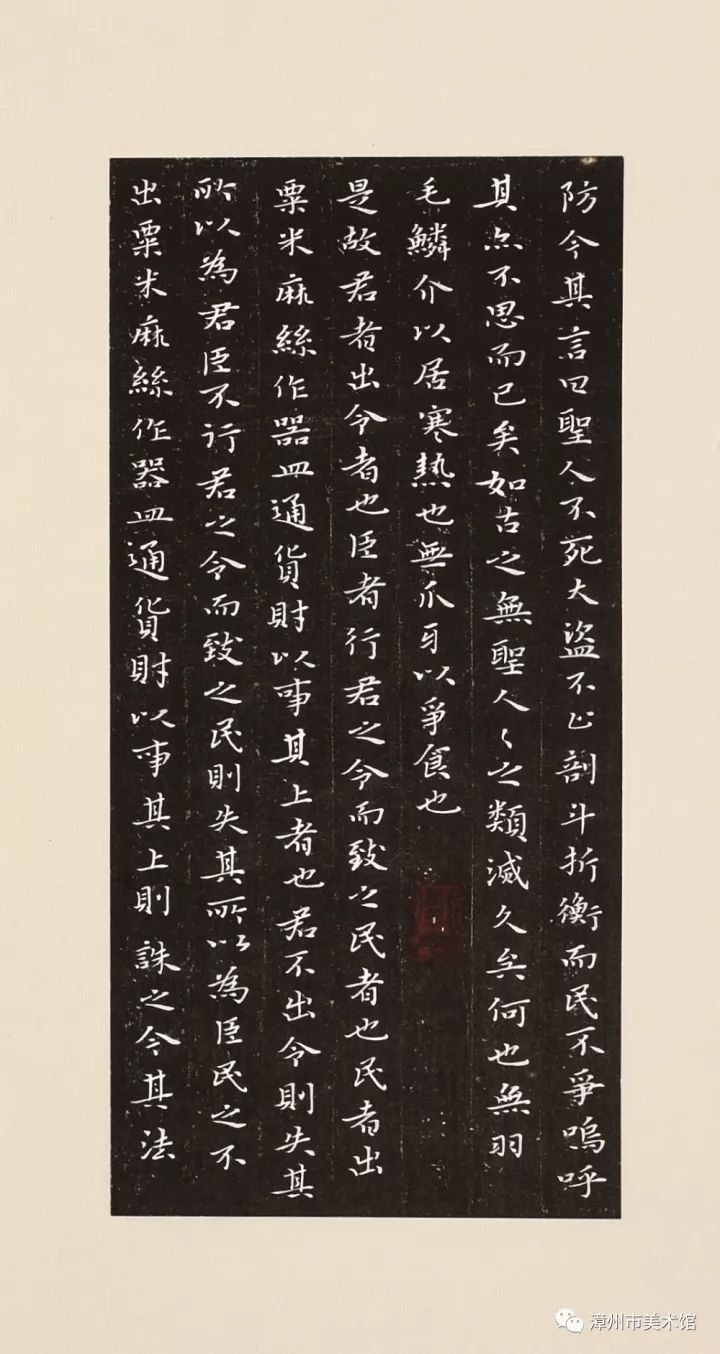 防今其言曰聖人不死大盜不止剖斗折衡而民不爭嗚呼
其亦不思而已矣如古之無聖人〻之類滅久矣何也無羽
毛鱗介以居寒熱也無爪牙以爭食也
是故君者出令者也臣者行君之令而致之民者也民者出
粟米麻絲作器皿通貨財以事其上者也君不出令則失其
所以為君臣不行君之令而致之民則失其所以為臣民之不
出粟米麻絲作器皿通貨財以事其上則誅之今其法
漳州市美术馆